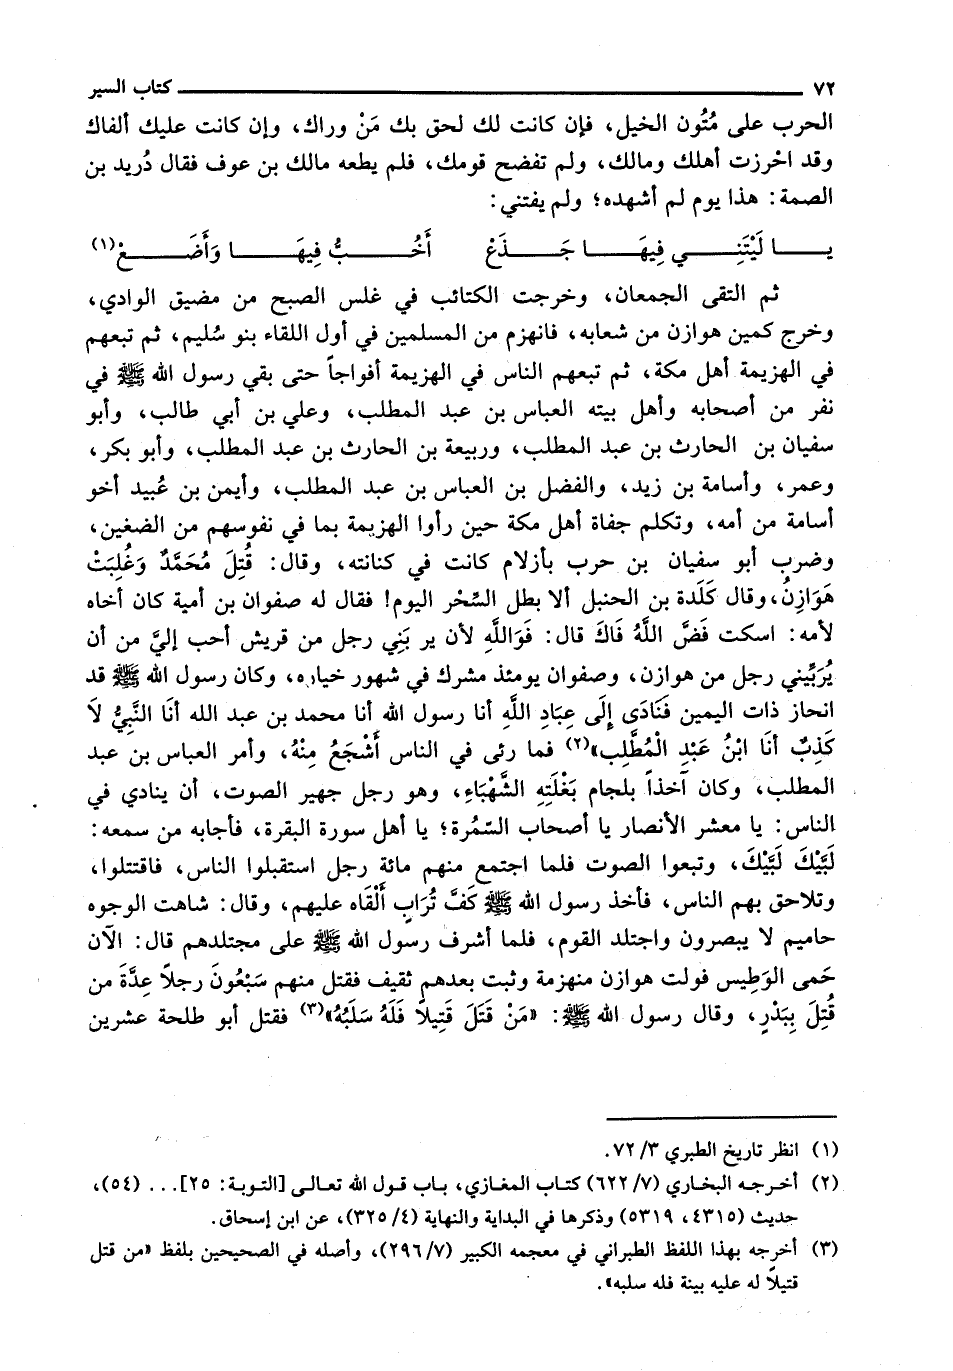 ٧٢ كتاب السير
الحرب على مُتُون الخيل، فإن كانت لك لحق بك مَنْ وراك، وإن كانت عليك ألفاك
وقد احْرزت أهلك ومالك، ولم تفضح قومك، فلم يطعه مالك بن عوف فقال دُريد بن
الصمة: هذا يوم لم أشهده؛ ولم يفتني:
يـا لَيْتَنِـي فِيهَـا جَـذَعْ أَخُـبُّ فِيهَـا وَأَضَـعْ(١)
ثم التقى الجمعان، وخرجت الكتائب في غلس الصبح من مضيق الوادي،
وخرج كمين هوازن من شعابه، فانهزم من المسلمين في أول اللقاء بنو سُليم، ثم تبعهم
في الهزيمة أهل مكة، ثم تبعهم الناس في الهزيمة أفواجاً حتى بقي رسول الله ﷺ في
نفر من أصحابه وأهل بيته العباس بن عبد المطلب، وعلي بن أبي طالب، وأبو
سفيان بن الحارث بن عبد المطلب، وربيعة بن الحارث بن عبد المطلب، وأبو بكر،
وعمر، وأسامة بن زيد، والفضل بن العباس بن عبد المطلب، وأيمن بن عُبيد أخو
أسامة من أمه، وتكلم جفاة أهل مكة حين رأوا الهزيمة بما في نفوسهم من الضغين،
وضرب أبو سفيان بن حرب بأزلام كانت في كنانته، وقال: قُتِلَ مُحَمَّدٌ وَغُلِبَتْ
هَوَازِنُ، وقال كَلَدة بن الحنبل ألا بطل السِّحْر اليوم! فقال له صفوان بن أمية كان أخاه
لأمه: اسكت فَضَّ اللَّهُ فَاكَ قال: فَوَاللَّهِ لأن ير بَنِي رجل من قريش أحب إليَّ من أن
يُرَبِّيني رجل من هوازن، وصفوان يومئذ مشرك في شهور خياره، وكان رسول الله ﷺ قد
انحاز ذات اليمين فَنَادَى إلَى عِبَادِ اللَّهِ أنا رسول الله أنا محمد بن عبد الله أنَا النَّبِيُّ لَا
كَذِبْ أنَا ابْنُ عَبْدِ الْمُطَّلِب»(٢) فما رئى في الناس أَشْجَعُ مِنْهُ، وأمر العباس بن عبد
المطلب، وكان آخذاً بلجام بَغْلَتِهِ الشَّهْبَاءِ، وهو رجل جهير الصوت، أن ينادي في
الناس: يا معشر الأنصار يا أصحاب السّمُرة؛ يا أهل سورة البقرة، فأجابه من سمعه:
لَبَّيْكَ لَبَّيْكَ، وتبعوا الصوت فلما اجتمع منهم مائة رجل استقبلوا الناس، فاقتتلوا،
وتلاحق بهم الناس، فأخذ رسول الله ﷺ كَفَّ تُرَابٍ ألْقَاه عليهم، وقال: شاهت الوجوه
حاميم لا يبصرون واجتلد القوم، فلما أشرف رسول الله ﷺ على مجتلدهم قال: الآن
حَمى الوَطِيس فولت هوازن منهزمة وثبت بعدهم ثقيف فقتل منهم سَبْعُونَ رجلاً عِدَّةَ من
قُتِلَ بِبَدْرٍ، وقال رسول الله ﷺ: «مَنْ قَتَلَ قَتِيلاً فَلَهُ سَلَبُهُ»(٣) فقتل أبو طلحة عشرين
(١) انظر تاريخ الطبري ٣/ ٧٢.
(٢) أخرجه البخاري (٧/ ٦٢٢) كتاب المغازي، باب قول الله تعالى [التوبة: ٢٥]... (٥٤)،
حديث (٤٣١٥، ٥٣١٩) وذكرها في البداية والنهاية (٤/ ٣٢٥)، عن ابن إسحاق.
(٣) أخرجه بهذا اللفظ الطبراني في معجمه الكبير (٧/ ٢٩٦)، وأصله في الصحيحين بلفظ «من قتل
قتيلاً له عليه بينة فله سلبه».